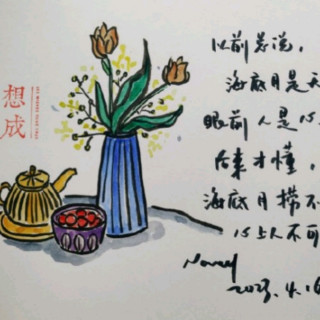 想成
以前总说，
海底月是天
眼前人是心
后来才懂，
海底月捞不
心上人不可
2023.4.16